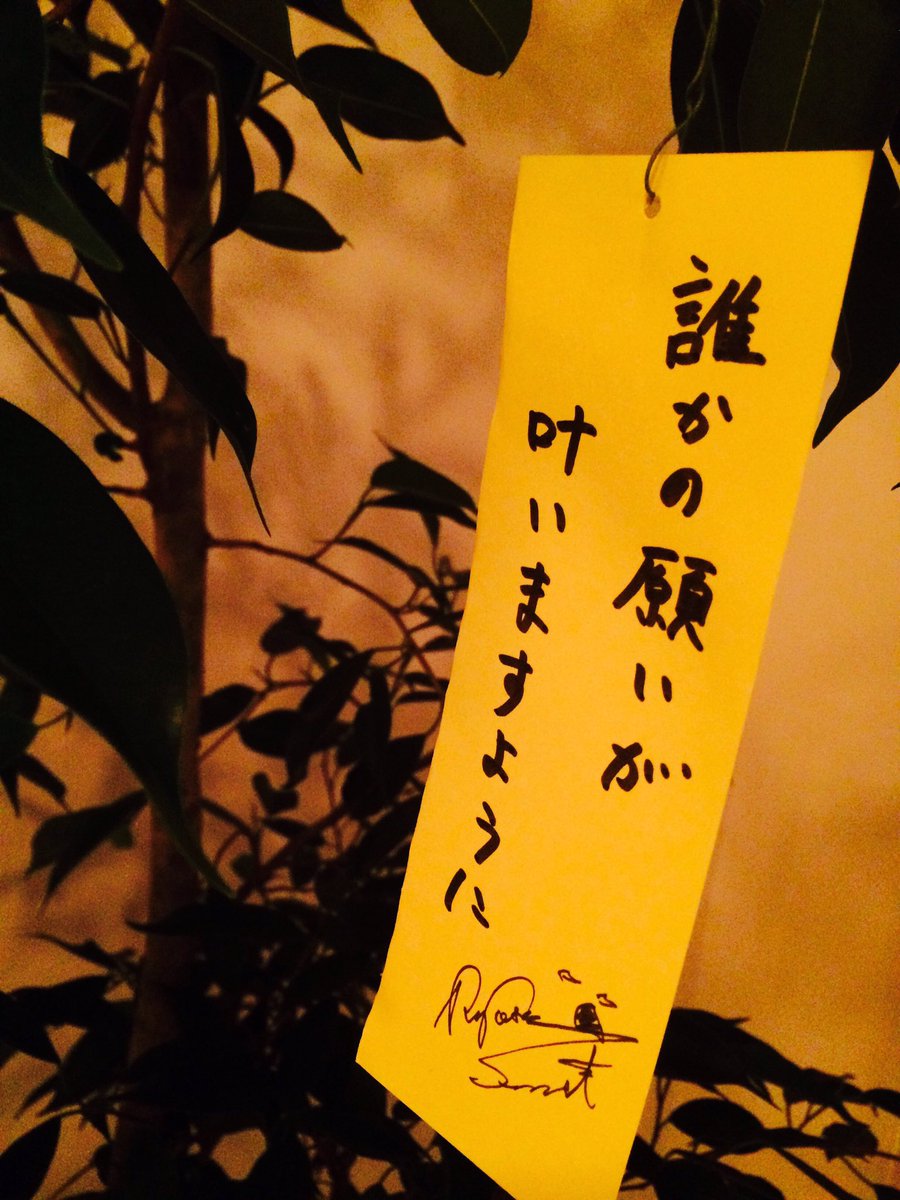 誰かの願いが
叶いますように